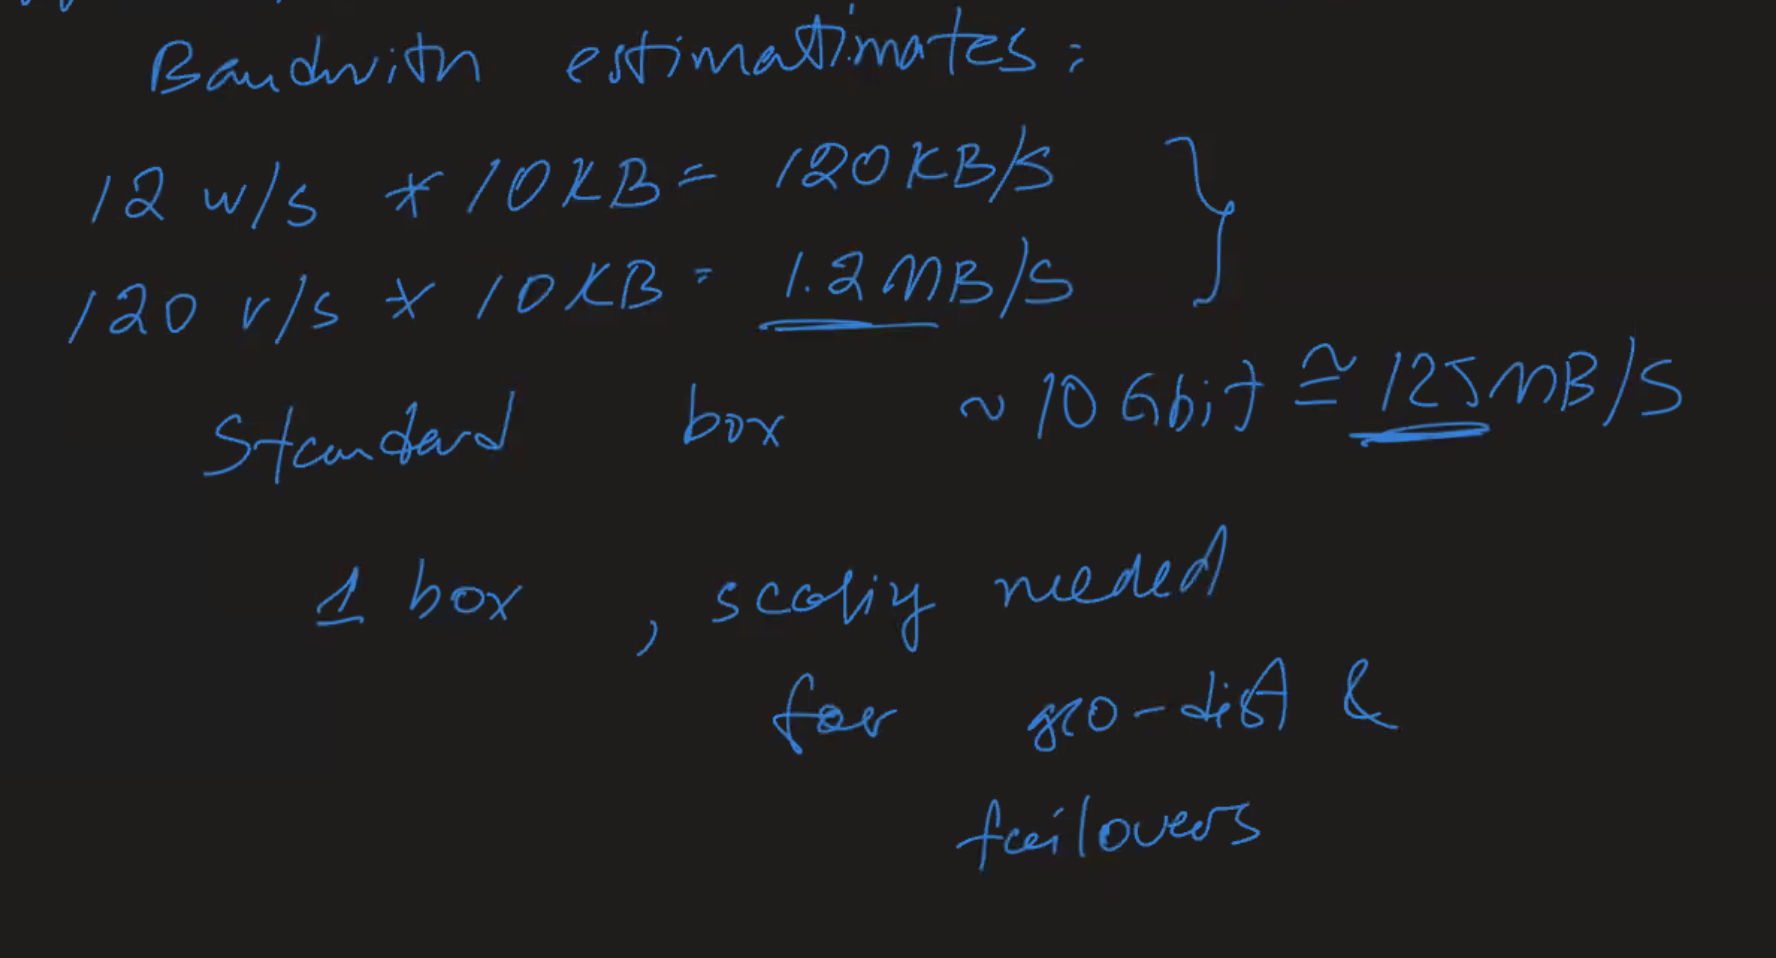 Bandwith estimatimates:
12 w/s * 10KB = 120KB/s
120 r/s * 10KB = 1.2MB/s
Standard box ~10 Gbit ≅ 125MB/s
1 box, scaling needed
for geo-dist &
failovers